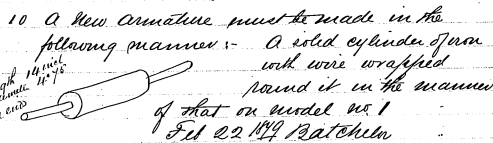 10 A New armature must be made in the
following manner :- A solid cylinder of iron
with wire wrapped
round it in the manner
of that on model no. 1
Feb 22 1879 Batchelor
14 inch